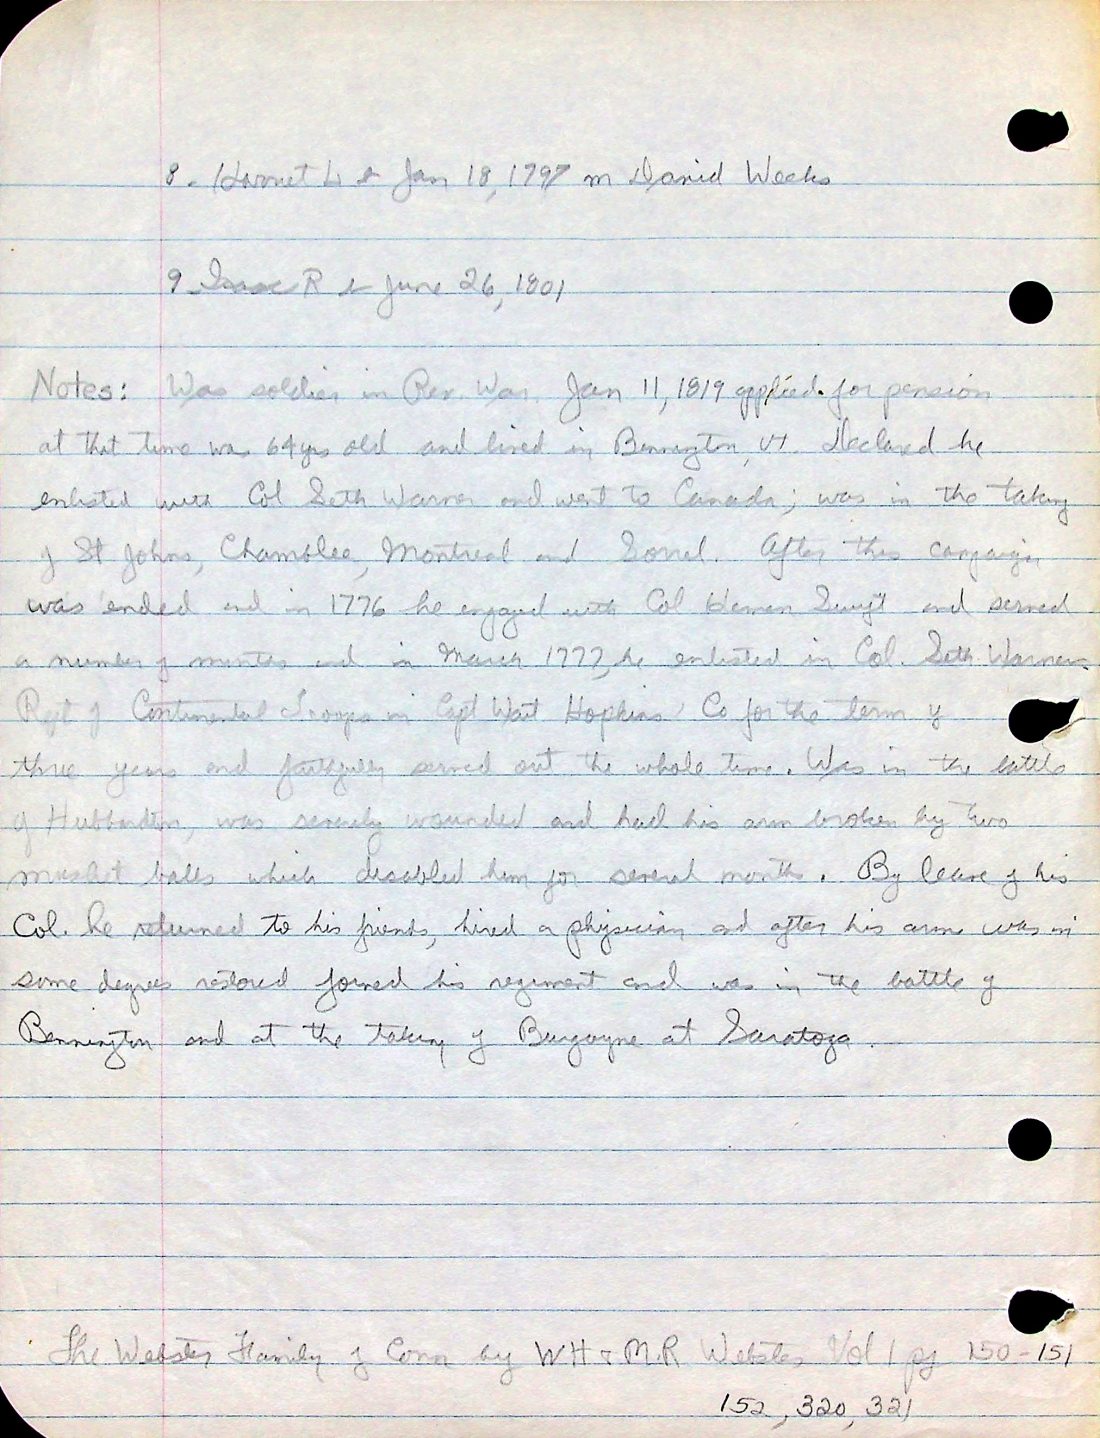 8. Harriet L b Jan 18, 1797 m David Weeks
9 Isaac R b June 26, 1801
Notes: Was soldier in Rev. War. Jan 11, 1819 applied for pension
at that time was 64 yrs old and lived in Bennington, Vt. Declared he
enlisted with Col Seth Warner and went to Canada; was in the taking
of St Johns, Chamblee, Montreal and Sorrel. After this campaign
was ended and in 1776 he engaged with Col Heman Swift and served
a number of months and in March 1777, he enlisted in Col. Seth Warners
Regt of Continental Troops in Capt Wait Hopkins' Co for the term of
three years and faithfully served out the whole time. Was in the battle
of Hubbardton, was severely wounded and had his arm broken by two
musket balls which disabled him for several months. By leave of his
Col. he returned to his friends, hired a physician and after his arm was in
some degree restored joined his regiment and was in the battle of
Bennington and at the taking of Burgoyne at Saratoga.
The Webster Family of Conn by WH & M.R Webster Vol 1 pg 150-151
152, 320, 321